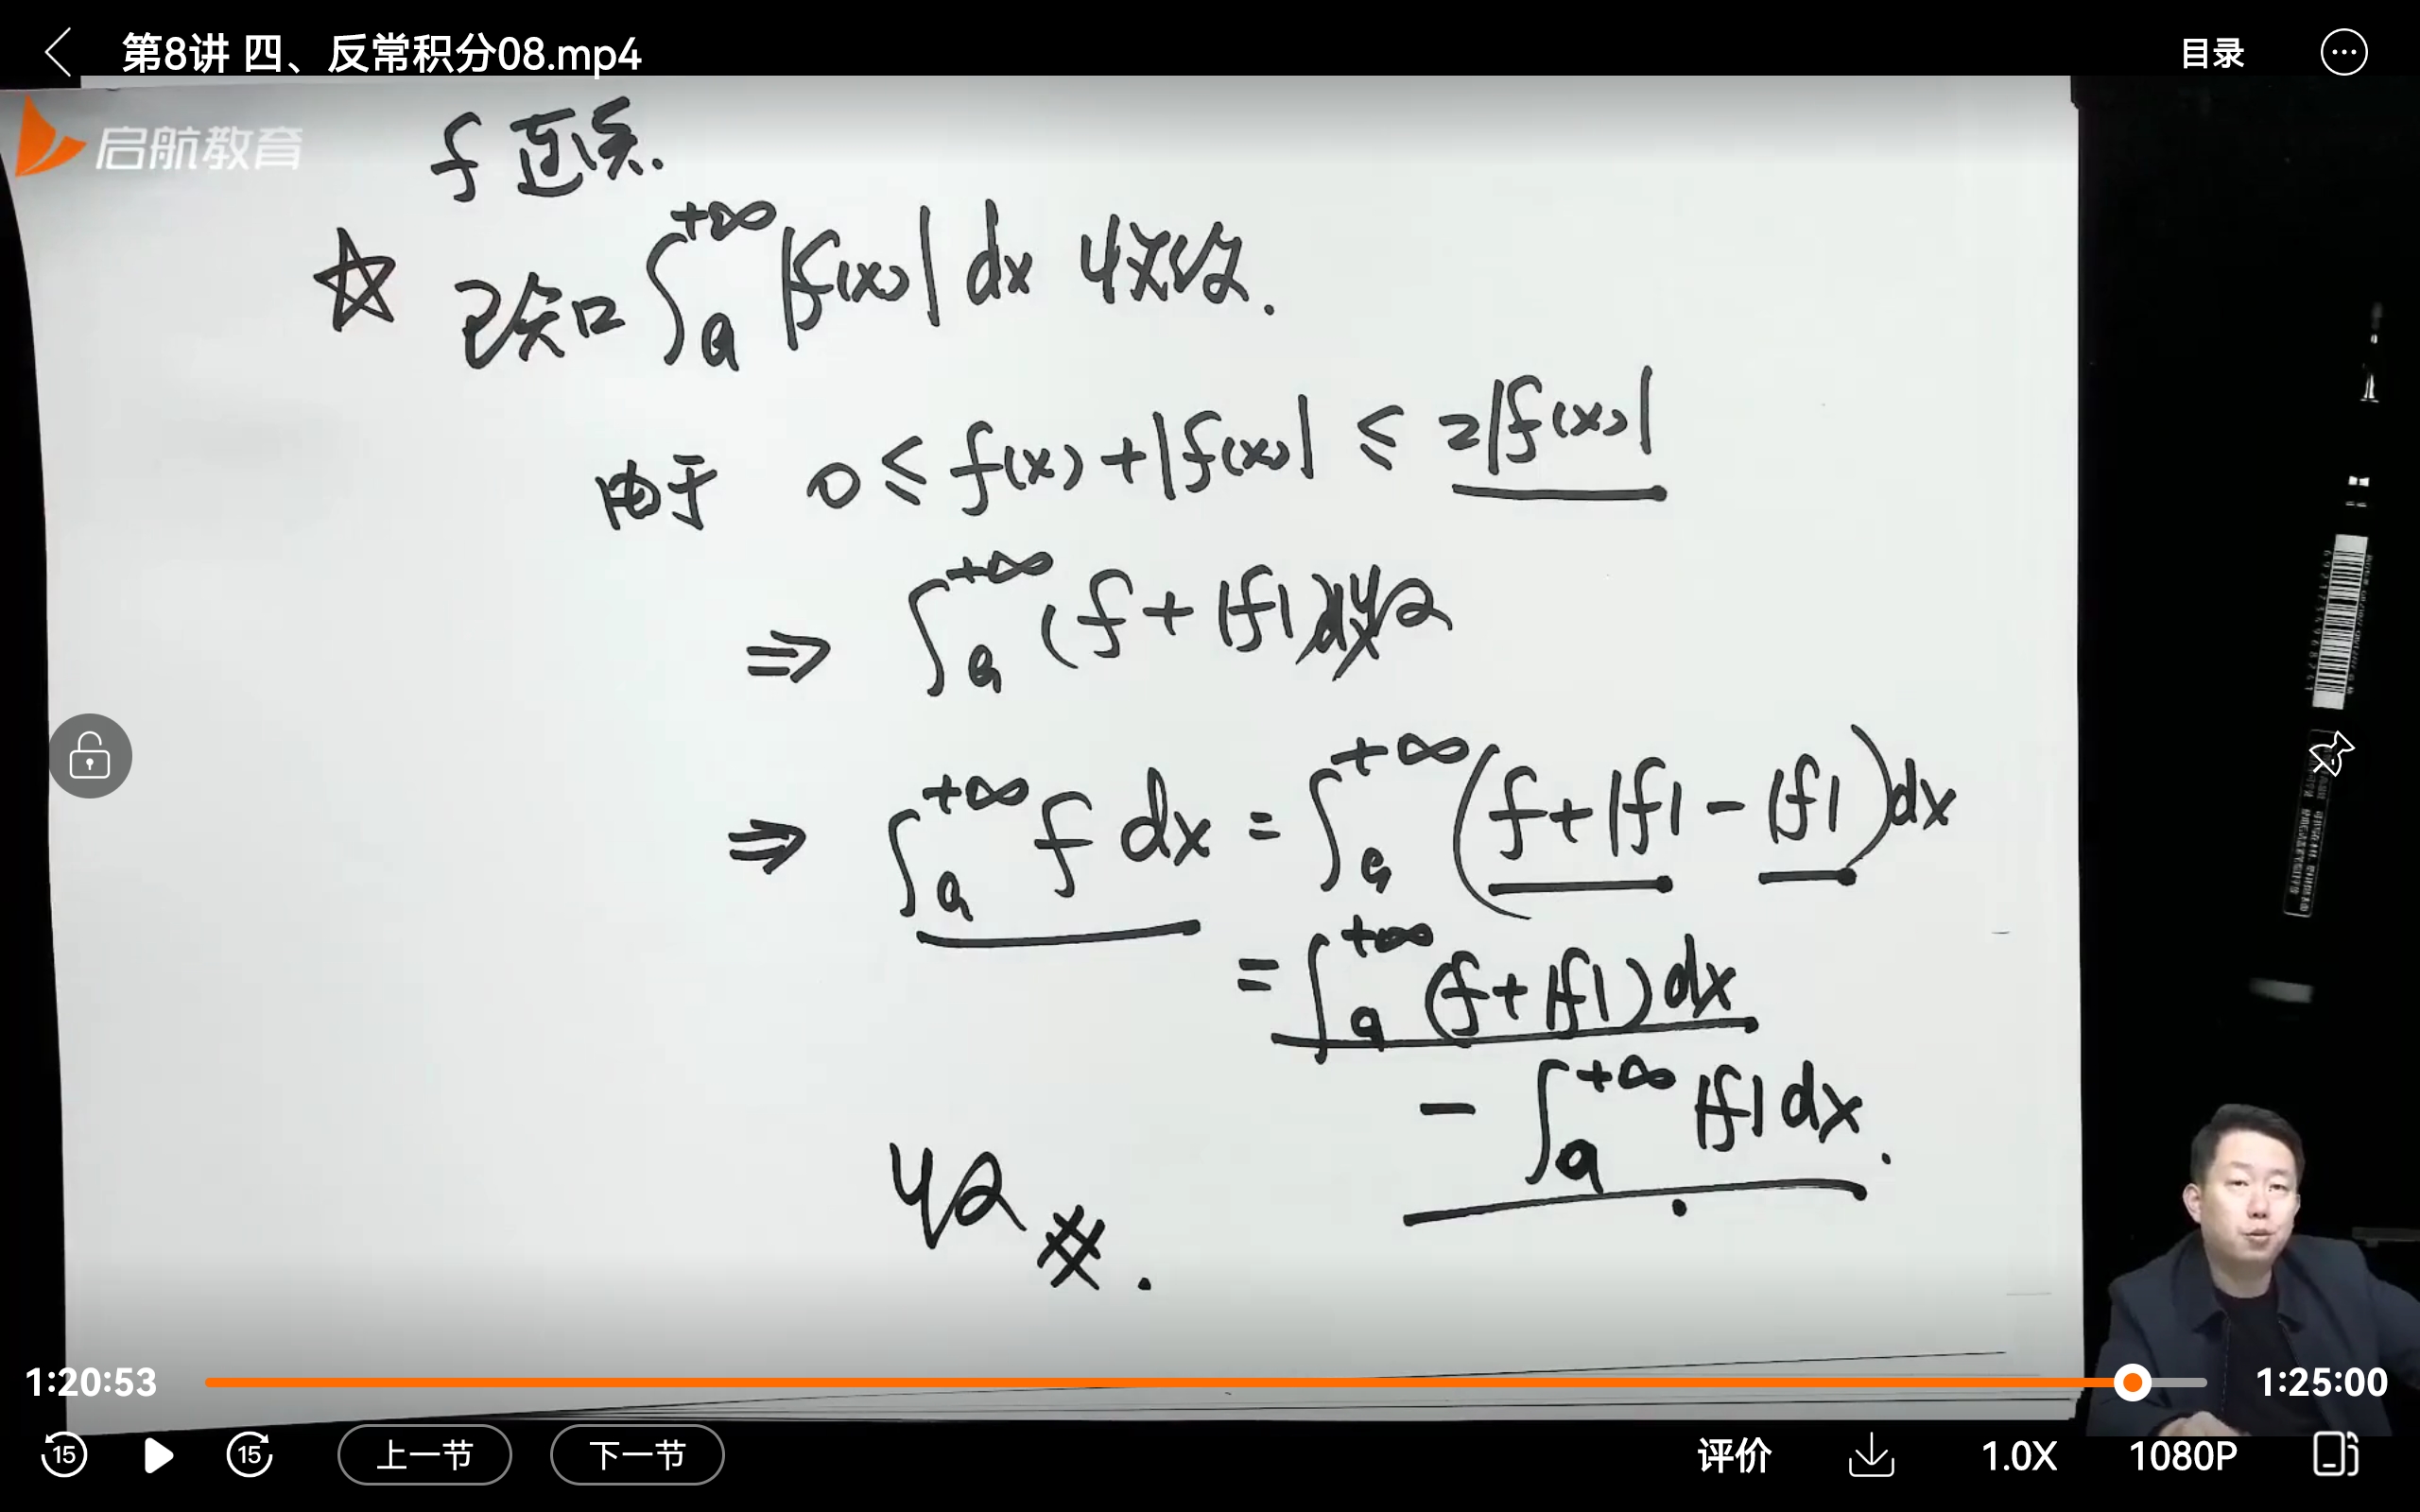 第8讲 四、反常积分08.mp4
目录
启航教育
f 连续.
☆ 已知 ∫_a^{+∞} |f(x)| dx 收敛.
由于 0 ≤ f(x) + |f(x)| ≤ 2|f(x)|
⇒ ∫_a^{+∞} (f + |f|) dx 收
⇒ ∫_a^{+∞} f dx = ∫_a^{+∞} (f + |f| - |f|) dx
= ∫_a^{+∞} (f + |f|) dx
- ∫_a^{+∞} |f| dx.
收 #.
1:20:53
1:25:00
15
15
上一节
下一节
评价
1.0X
1080P